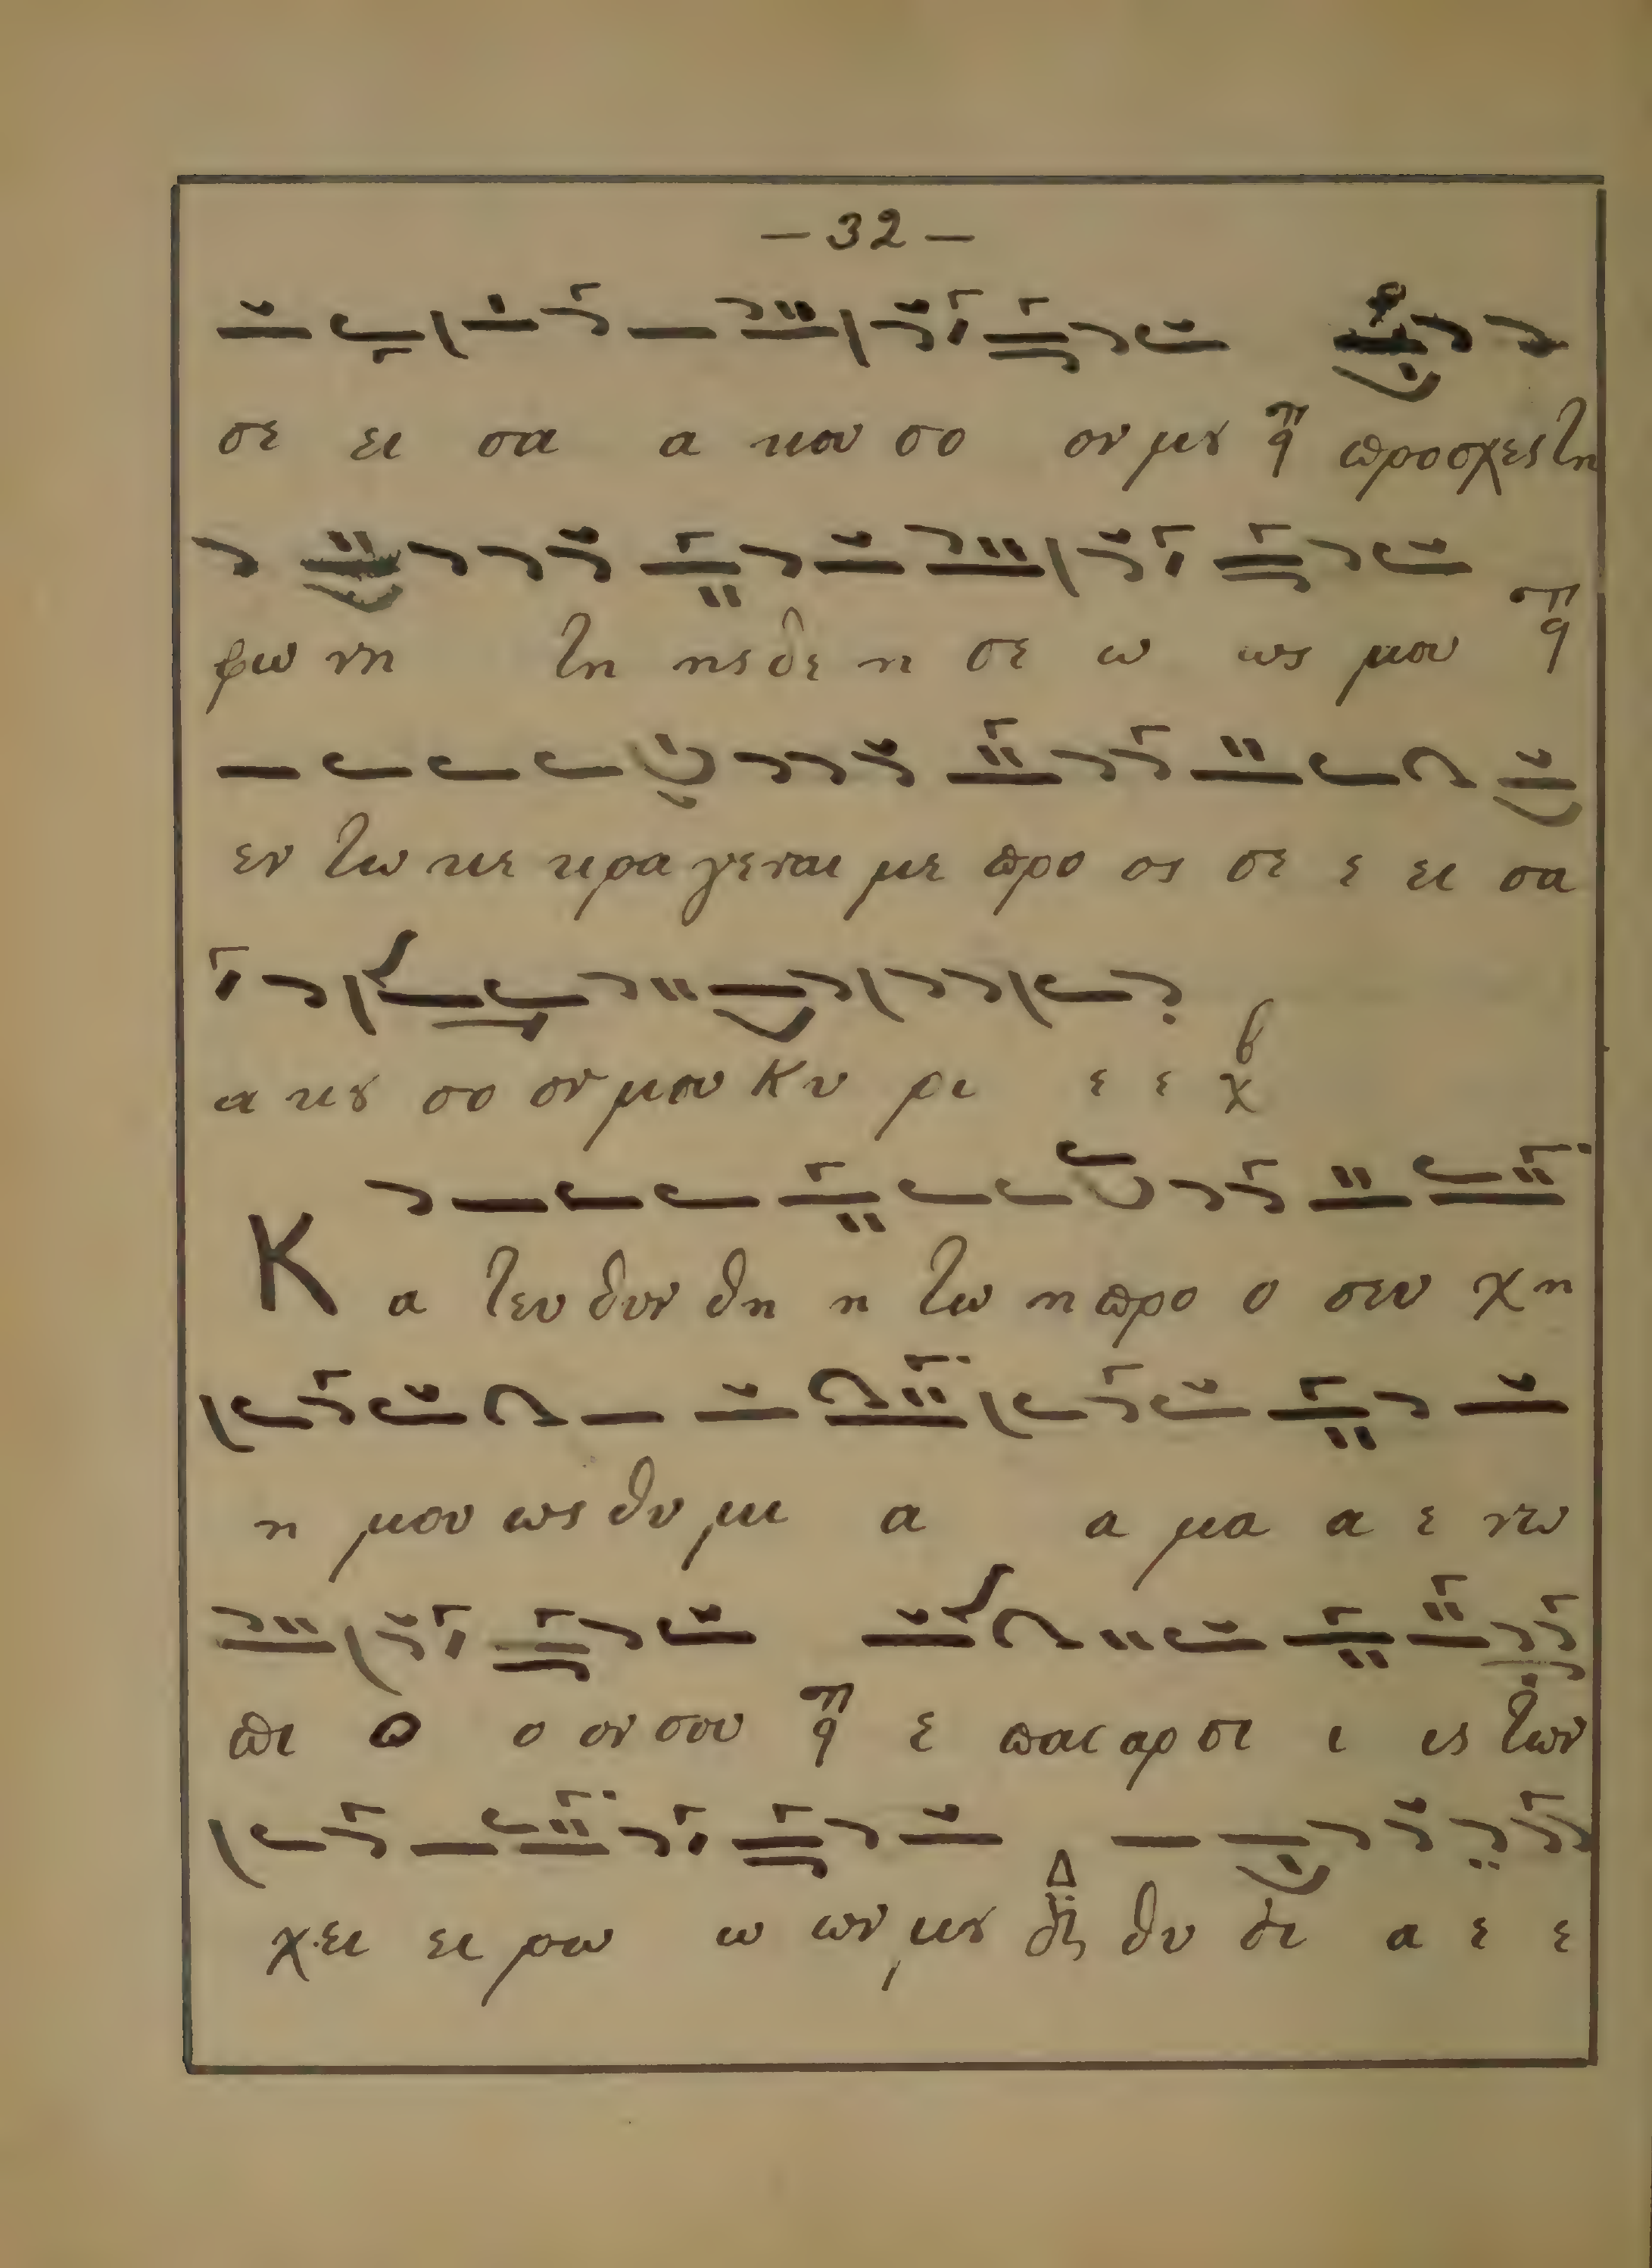 — 32 —
σε ει σα α κου σο ον μȣ προσχες τη
φω νη τη ης δε η σε ω ως μου
εν τω κε κρα γεναι με προ ος σε ε ει σα
α κȣ σο ον μου Κυ ρι ε ε
Κ α τευ θυν θη η τω η προ ο σευ χη
η μου ως θυ μι α α μα α ε νω
πι ο ο ον σου ε παι αρ σι ι ις των
χει ει ρω ω ων μȣ θυ σι α ε ε